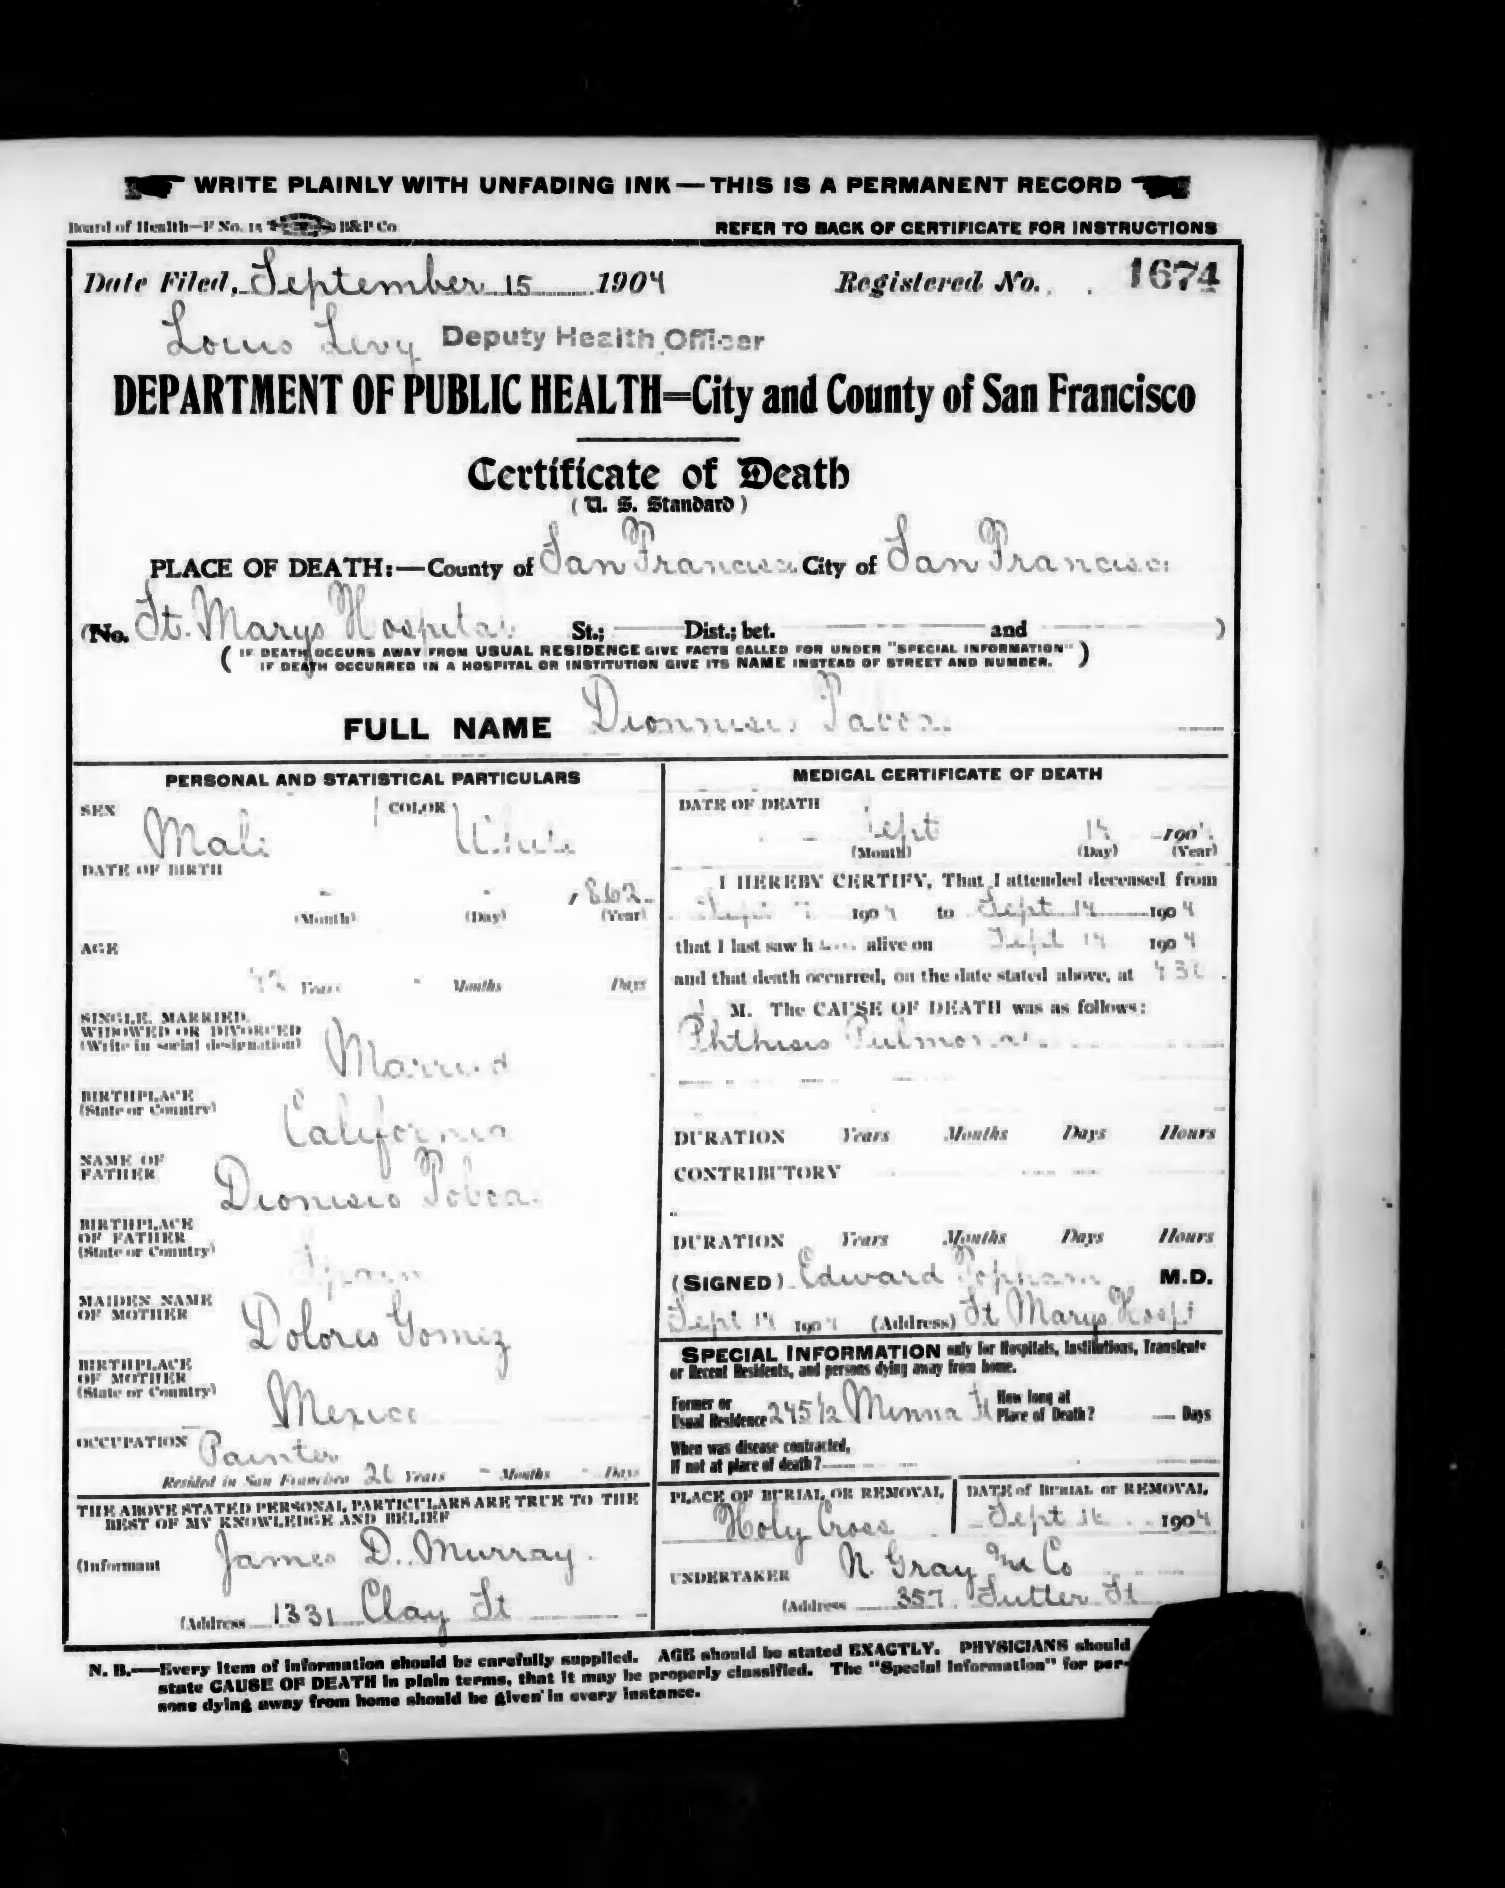 WRITE PLAINLY WITH UNFADING INK—THIS IS A PERMANENT RECORD
Board of Health—F No. 15 H&P Co
REFER TO BACK OF CERTIFICATE FOR INSTRUCTIONS
Date Filed, September 15 1904 Registered No. 1674
Louis Levy Deputy Health Officer
DEPARTMENT OF PUBLIC HEALTH=City and County of San Francisco
Certificate of Death
(U. S. Standard)
PLACE OF DEATH:—County of San Francisco City of San Francisco
(No. St. Marys Hospital St.; Dist.; bet. and )
( IF DEATH OCCURS AWAY FROM USUAL RESIDENCE GIVE FACTS CALLED FOR UNDER "SPECIAL INFORMATION"
IF DEATH OCCURRED IN A HOSPITAL OR INSTITUTION GIVE ITS NAME INSTEAD OF STREET AND NUMBER. )
FULL NAME
PERSONAL AND STATISTICAL PARTICULARS
SEX Male COLOR White
DATE OF BIRTH
1862
(Month) (Day) (Year)
AGE
42 Years Months Days
SINGLE, MARRIED,
WIDOWED OR DIVORCED
(Write in social designation) Married
BIRTHPLACE
(State or Country) California
NAME OF
FATHER Dionisio
BIRTHPLACE
OF FATHER
(State or Country) Spain
MAIDEN NAME
OF MOTHER Dolores Gomez
BIRTHPLACE
OF MOTHER
(State or Country) Mexico
OCCUPATION Painter
Resided in San Francisco Years Months Days
THE ABOVE STATED PERSONAL PARTICULARS ARE TRUE TO THE
BEST OF MY KNOWLEDGE AND BELIEF
(Informant James D. Murray
(Address 1331 Clay St
MEDICAL CERTIFICATE OF DEATH
DATE OF DEATH
Sept 14 1904
(Month) (Day) (Year)
I HEREBY CERTIFY, That I attended deceased from
Sept 1904 to Sept 14 1904
that I last saw h alive on Sept 14 1904
and that death occurred, on the date stated above, at 430
M. The CAUSE OF DEATH was as follows:
Phthisis Pulmonalis
DURATION Years Months Days Hours
CONTRIBUTORY
DURATION Years Months Days Hours
(SIGNED) Edward Topham M.D.
Sept 14 1904 (Address) St Marys Hospt
SPECIAL INFORMATION only for Hospitals, Institutions, Transients
or Recent Residents, and persons dying away from home.
Former or
Usual Residence 245½ Minna St How long at
Place of Death? Days
When was disease contracted,
If not at place of death?
PLACE OF BURIAL OR REMOVAL Holy Cross
DATE of BURIAL or REMOVAL
Sept 16 1904
UNDERTAKER N. Gray Co
(Address 357 Sutter St
N. B.—Every item of information should be carefully supplied. AGE should be stated EXACTLY. PHYSICIANS should
state CAUSE OF DEATH in plain terms, that it may be properly classified. The "Special Information" for per-
sons dying away from home should be given in every instance.